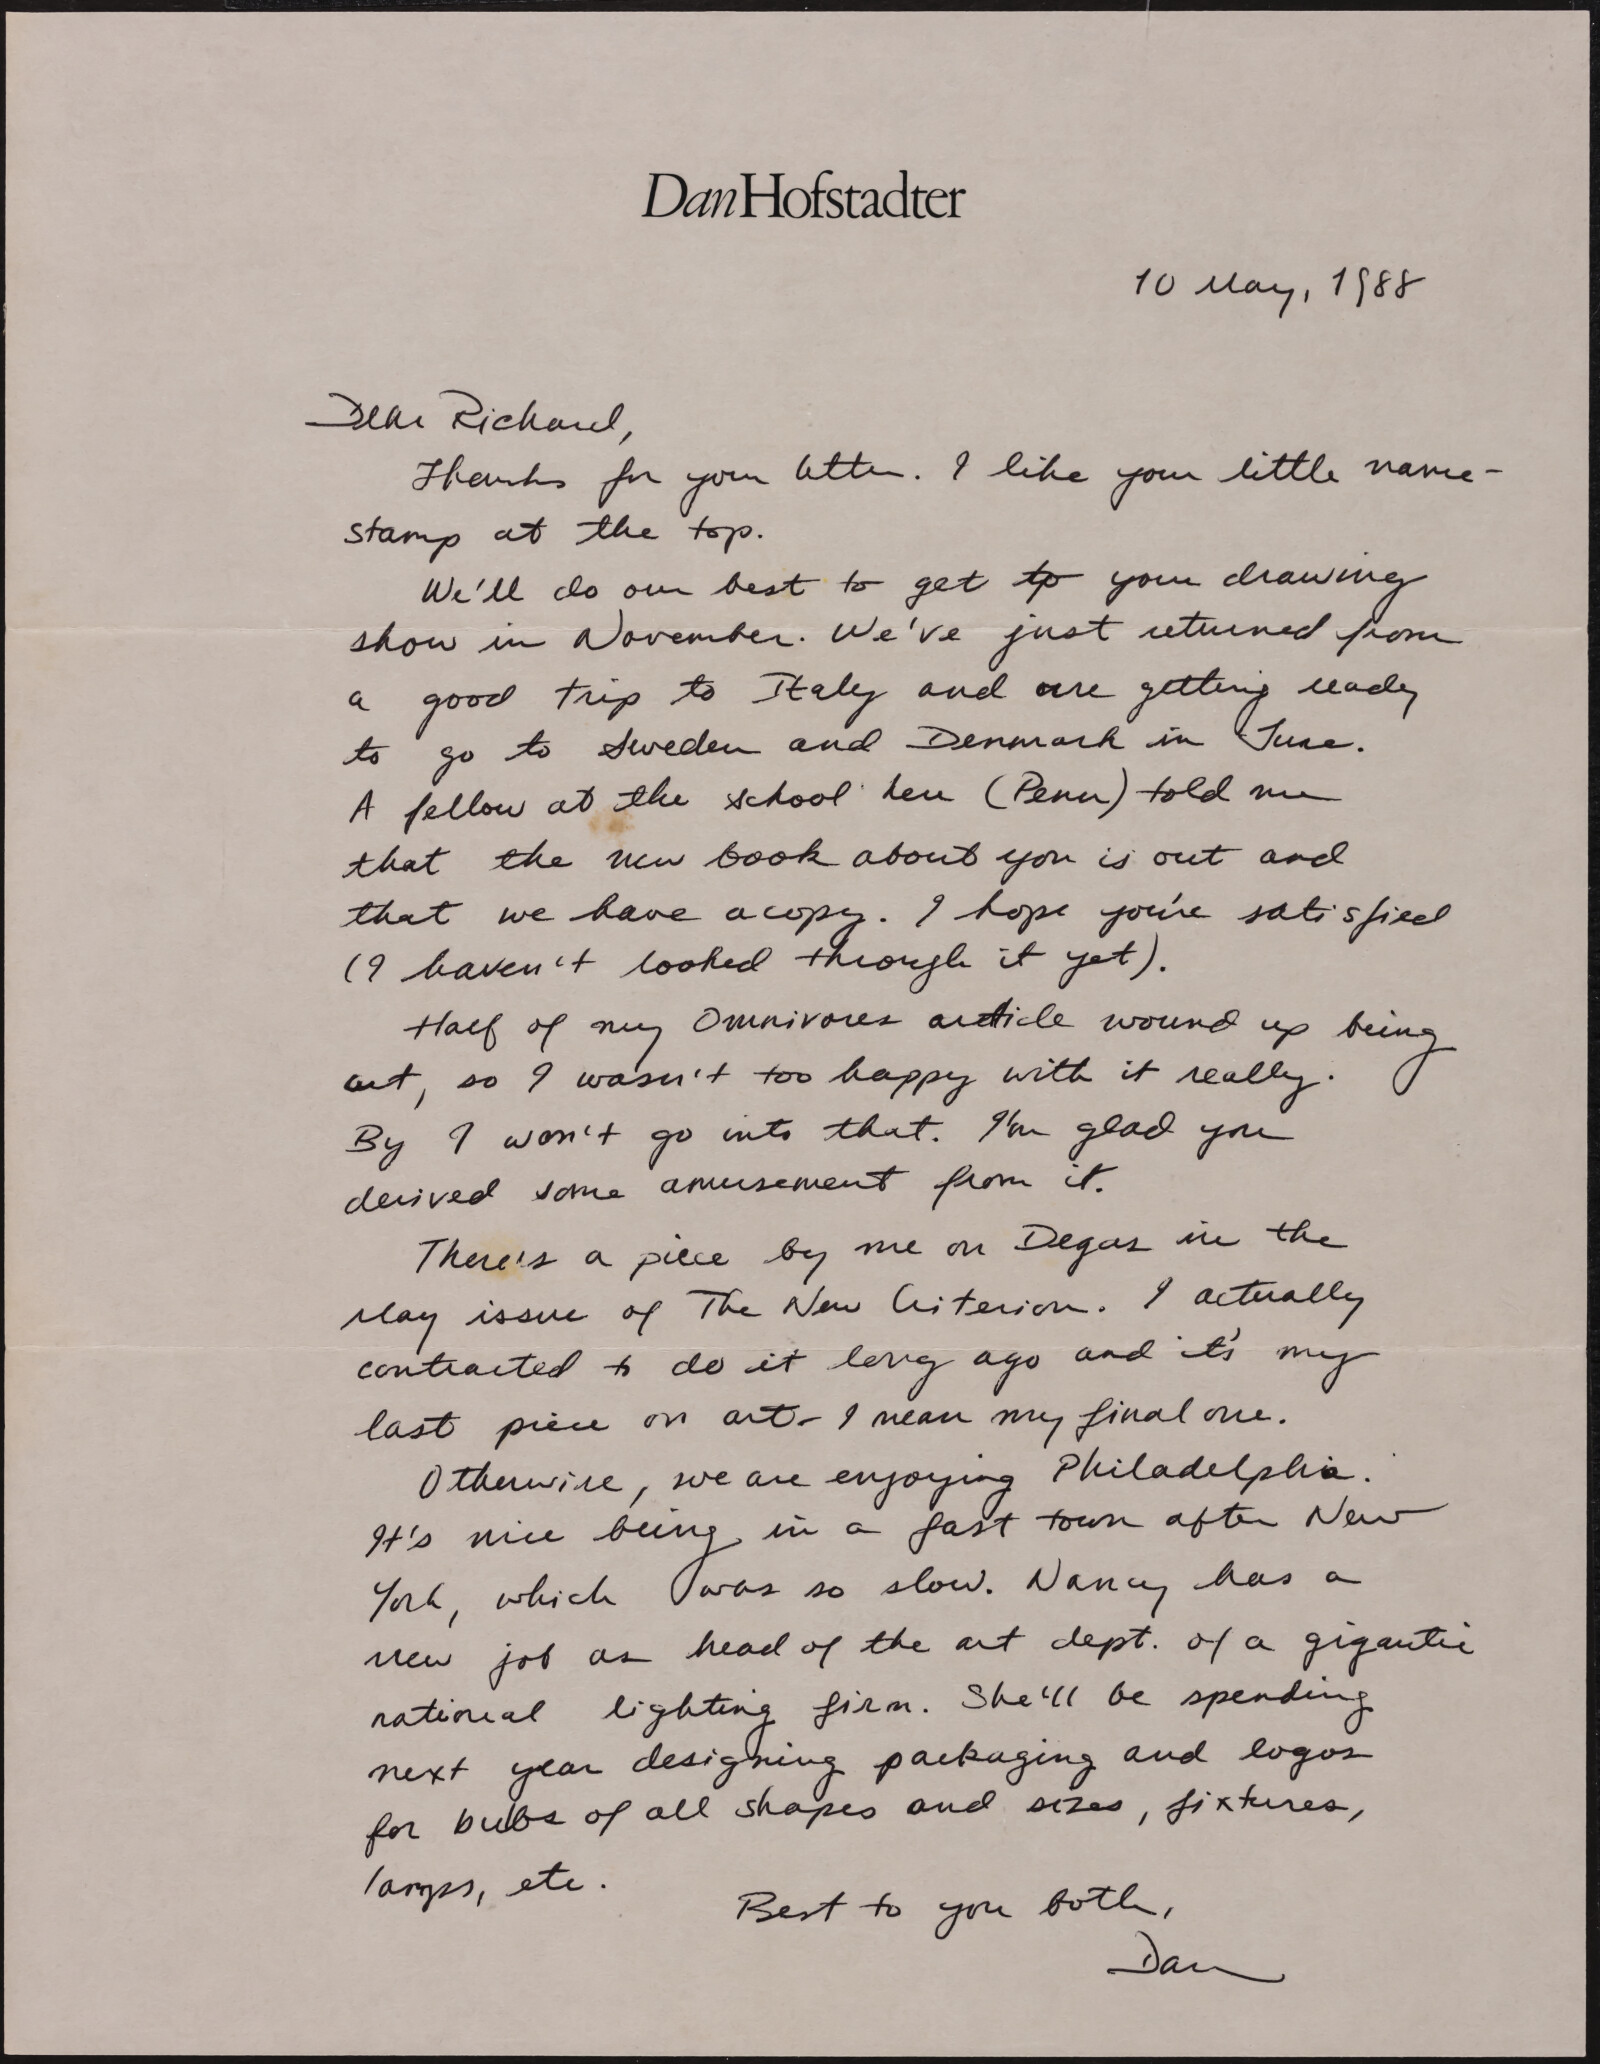 Dan Hofstadter
10 May, 1988
Dear Richard,
Thanks for your letter. I like your little name-
stamp at the top.
We'll do our best to get to your drawing
show in November. We've just returned from
a good trip to Italy and are getting ready
to go to Sweden and Denmark in June.
A fellow at the school here (Penn) told me
that the new book about you is out and
that we have a copy. I hope you're satisfied
(I haven't looked through it yet).
Half of my Omnivores article wound up being
cut, so I wasn't too happy with it really.
By I won't go into that. I'm glad you
derived some amusement from it.
There's a piece by me on Degas in the
May issue of The New Criterion. I actually
contracted to do it long ago and it's my
last piece on art - I mean my final one.
Otherwise, we are enjoying Philadelphia.
It's nice being in a fast town after New
York, which was so slow. Nancy has a
new job as head of the art dept. of a gigantic
national lighting firm. She'll be spending
next year designing packaging and logos
for bulbs of all shapes and sizes, fixtures,
lamps, etc.
Best to you both,
Dan